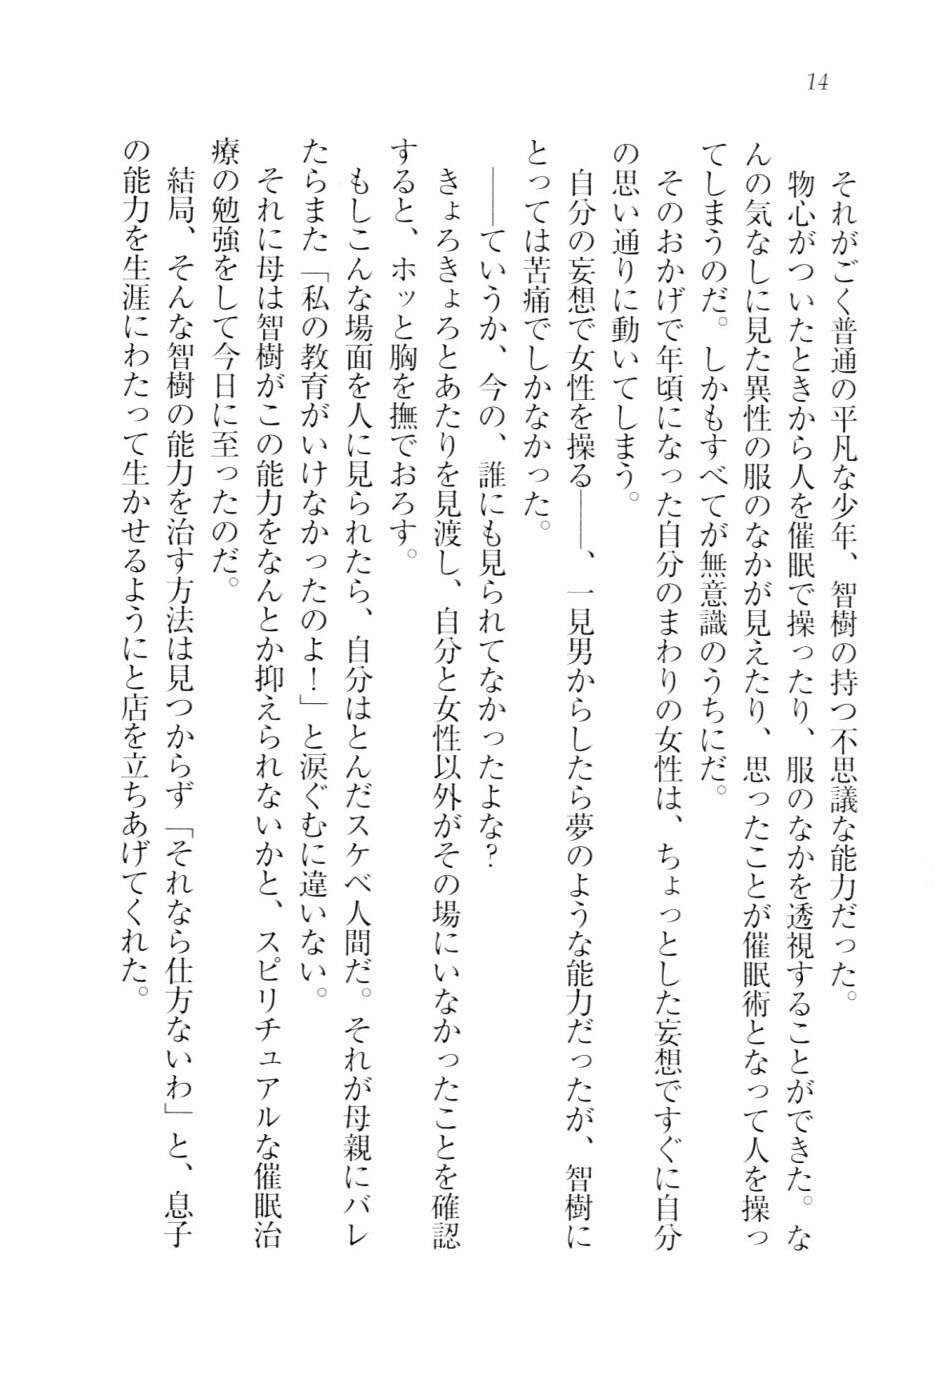 14
それがごく普通の平凡な少年、智樹の持つ不思議な能力だった。
物心がついたときから人を催眠で操ったり、服のなかを透視することができた。な
んの気なしに見た異性の服のなかが見えたり、思ったことが催眠術となって人を操っ
てしまうのだ。しかもすべてが無意識のうちにだ。
そのおかげで年頃になった自分のまわりの女性は、ちょっとした妄想ですぐに自分
の思い通りに動いてしまう。
自分の妄想で女性を操る――、一見男からしたら夢のような能力だったが、智樹に
とっては苦痛でしかなかった。
――ていうか、今の、誰にも見られてなかったよな?
きょろきょろとあたりを見渡し、自分と女性以外がその場にいなかったことを確認
すると、ホッと胸を撫でおろす。
もしこんな場面を人に見られたら、自分はとんだスケベ人間だ。それが母親にバレ
たらまた「私の教育がいけなかったのよ!」と涙ぐむに違いない。
それに母は智樹がこの能力をなんとか抑えられないかと、スピリチュアルな催眠治
療の勉強をして今日に至ったのだ。
結局、そんな智樹の能力を治す方法は見つからず「それなら仕方ないわ」と、息子
の能力を生涯にわたって生かせるようにと店を立ちあげてくれた。